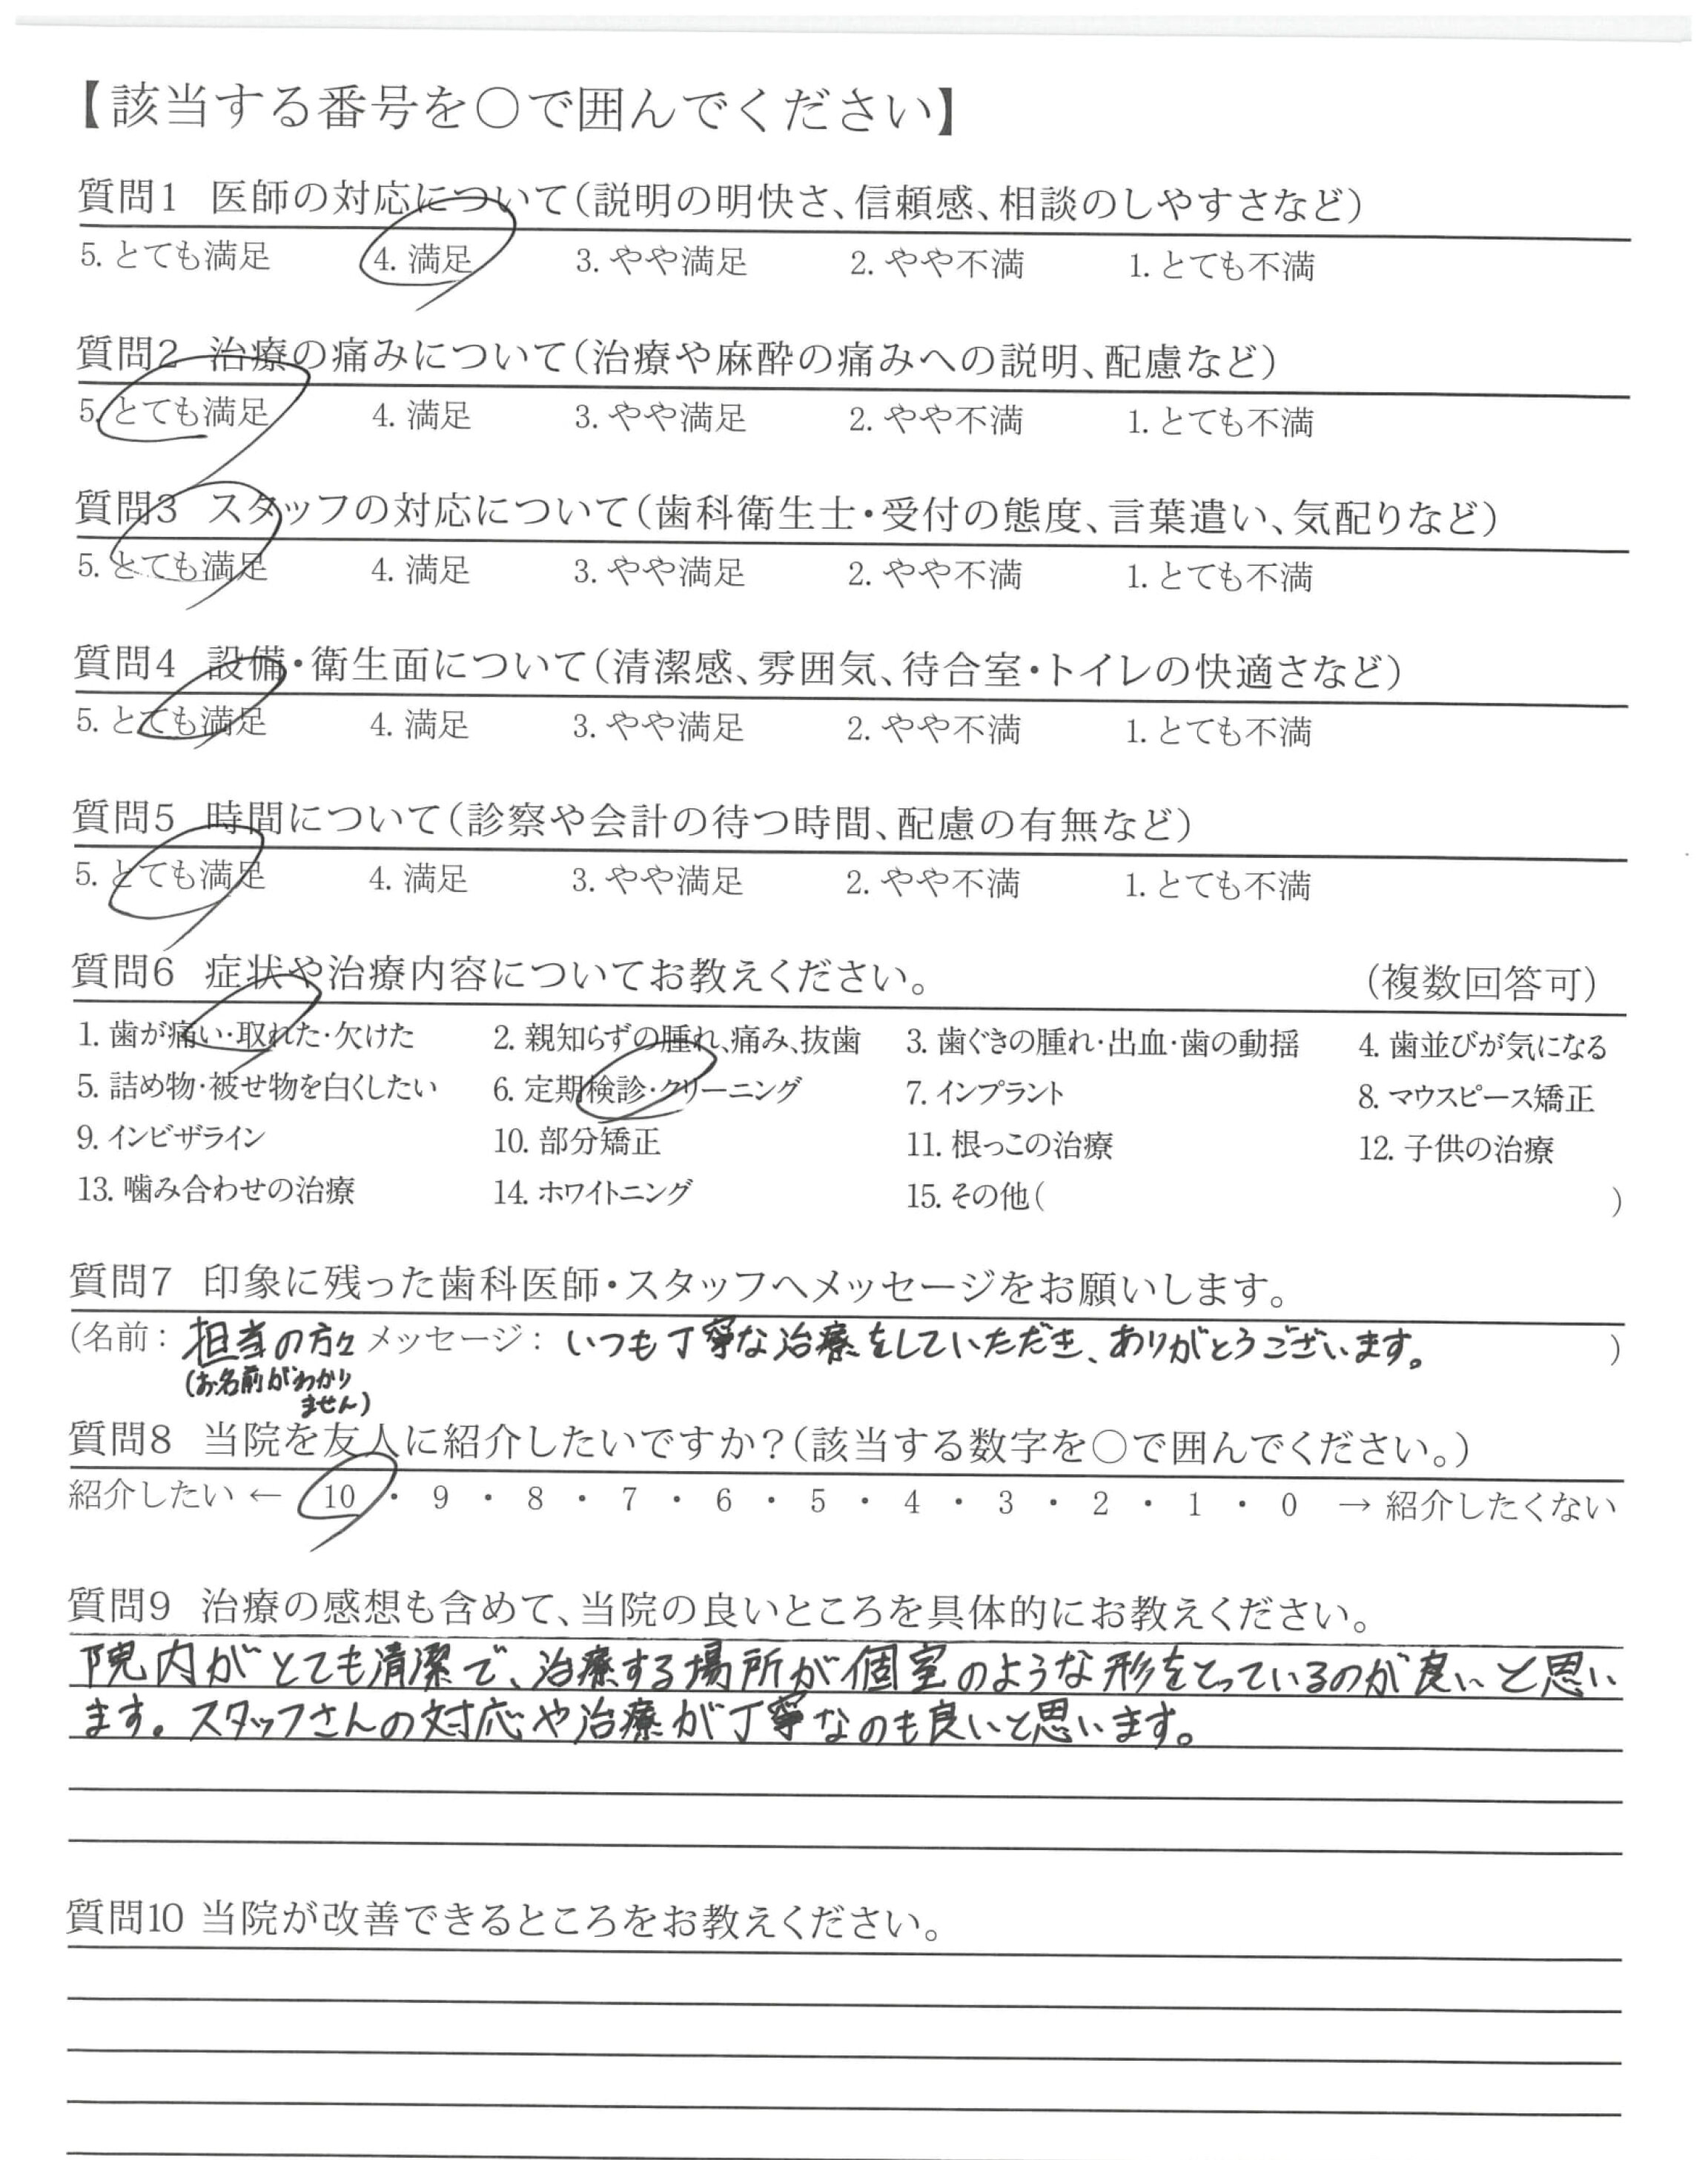 【該当する番号を○で囲んでください】
質問1 医師の対応について(説明の明快さ、信頼感、相談のしやすさなど)
5. とても満足 4. 満足 3. やや満足 2. やや不満 1. とても不満
質問2 治療の痛みについて(治療や麻酔の痛みへの説明、配慮など)
5. とても満足 4. 満足 3. やや満足 2. やや不満 1. とても不満
質問3 スタッフの対応について(歯科衛生士・受付の態度、言葉遣い、気配りなど)
5. とても満足 4. 満足 3. やや満足 2. やや不満 1. とても不満
質問4 設備・衛生面について(清潔感、雰囲気、待合室・トイレの快適さなど)
5. とても満足 4. 満足 3. やや満足 2. やや不満 1. とても不満
質問5 時間について(診察や会計の待つ時間、配慮の有無など)
5. とても満足 4. 満足 3. やや満足 2. やや不満 1. とても不満
質問6 症状や治療内容についてお教えください。 (複数回答可)
1. 歯が痛い・取れた・欠けた 2. 親知らずの腫れ、痛み、抜歯 3. 歯ぐきの腫れ・出血・歯の動揺 4. 歯並びが気になる
5. 詰め物・被せ物を白くしたい 6. 定期検診・クリーニング 7. インプラント 8. マウスピース矯正
9. インビザライン 10. 部分矯正 11. 根っこの治療 12. 子供の治療
13. 噛み合わせの治療 14. ホワイトニング 15. その他( )
質問7 印象に残った歯科医師・スタッフへメッセージをお願いします。
(名前: 担当の方々 メッセージ: いつも丁寧な治療をしていただき、ありがとうございます。 )
(お名前がわかり
ません)
質問8 当院を友人に紹介したいですか?(該当する数字を○で囲んでください。)
紹介したい ← 10 ・ 9 ・ 8 ・ 7 ・ 6 ・ 5 ・ 4 ・ 3 ・ 2 ・ 1 ・ 0 → 紹介したくない
質問9 治療の感想も含めて、当院の良いところを具体的にお教えください。
院内がとても清潔で、治療する場所が個室のような形をとっているのが良いと思い
ます。スタッフさんの対応や治療が丁寧なのも良いと思います。
質問10 当院が改善できるところをお教えください。